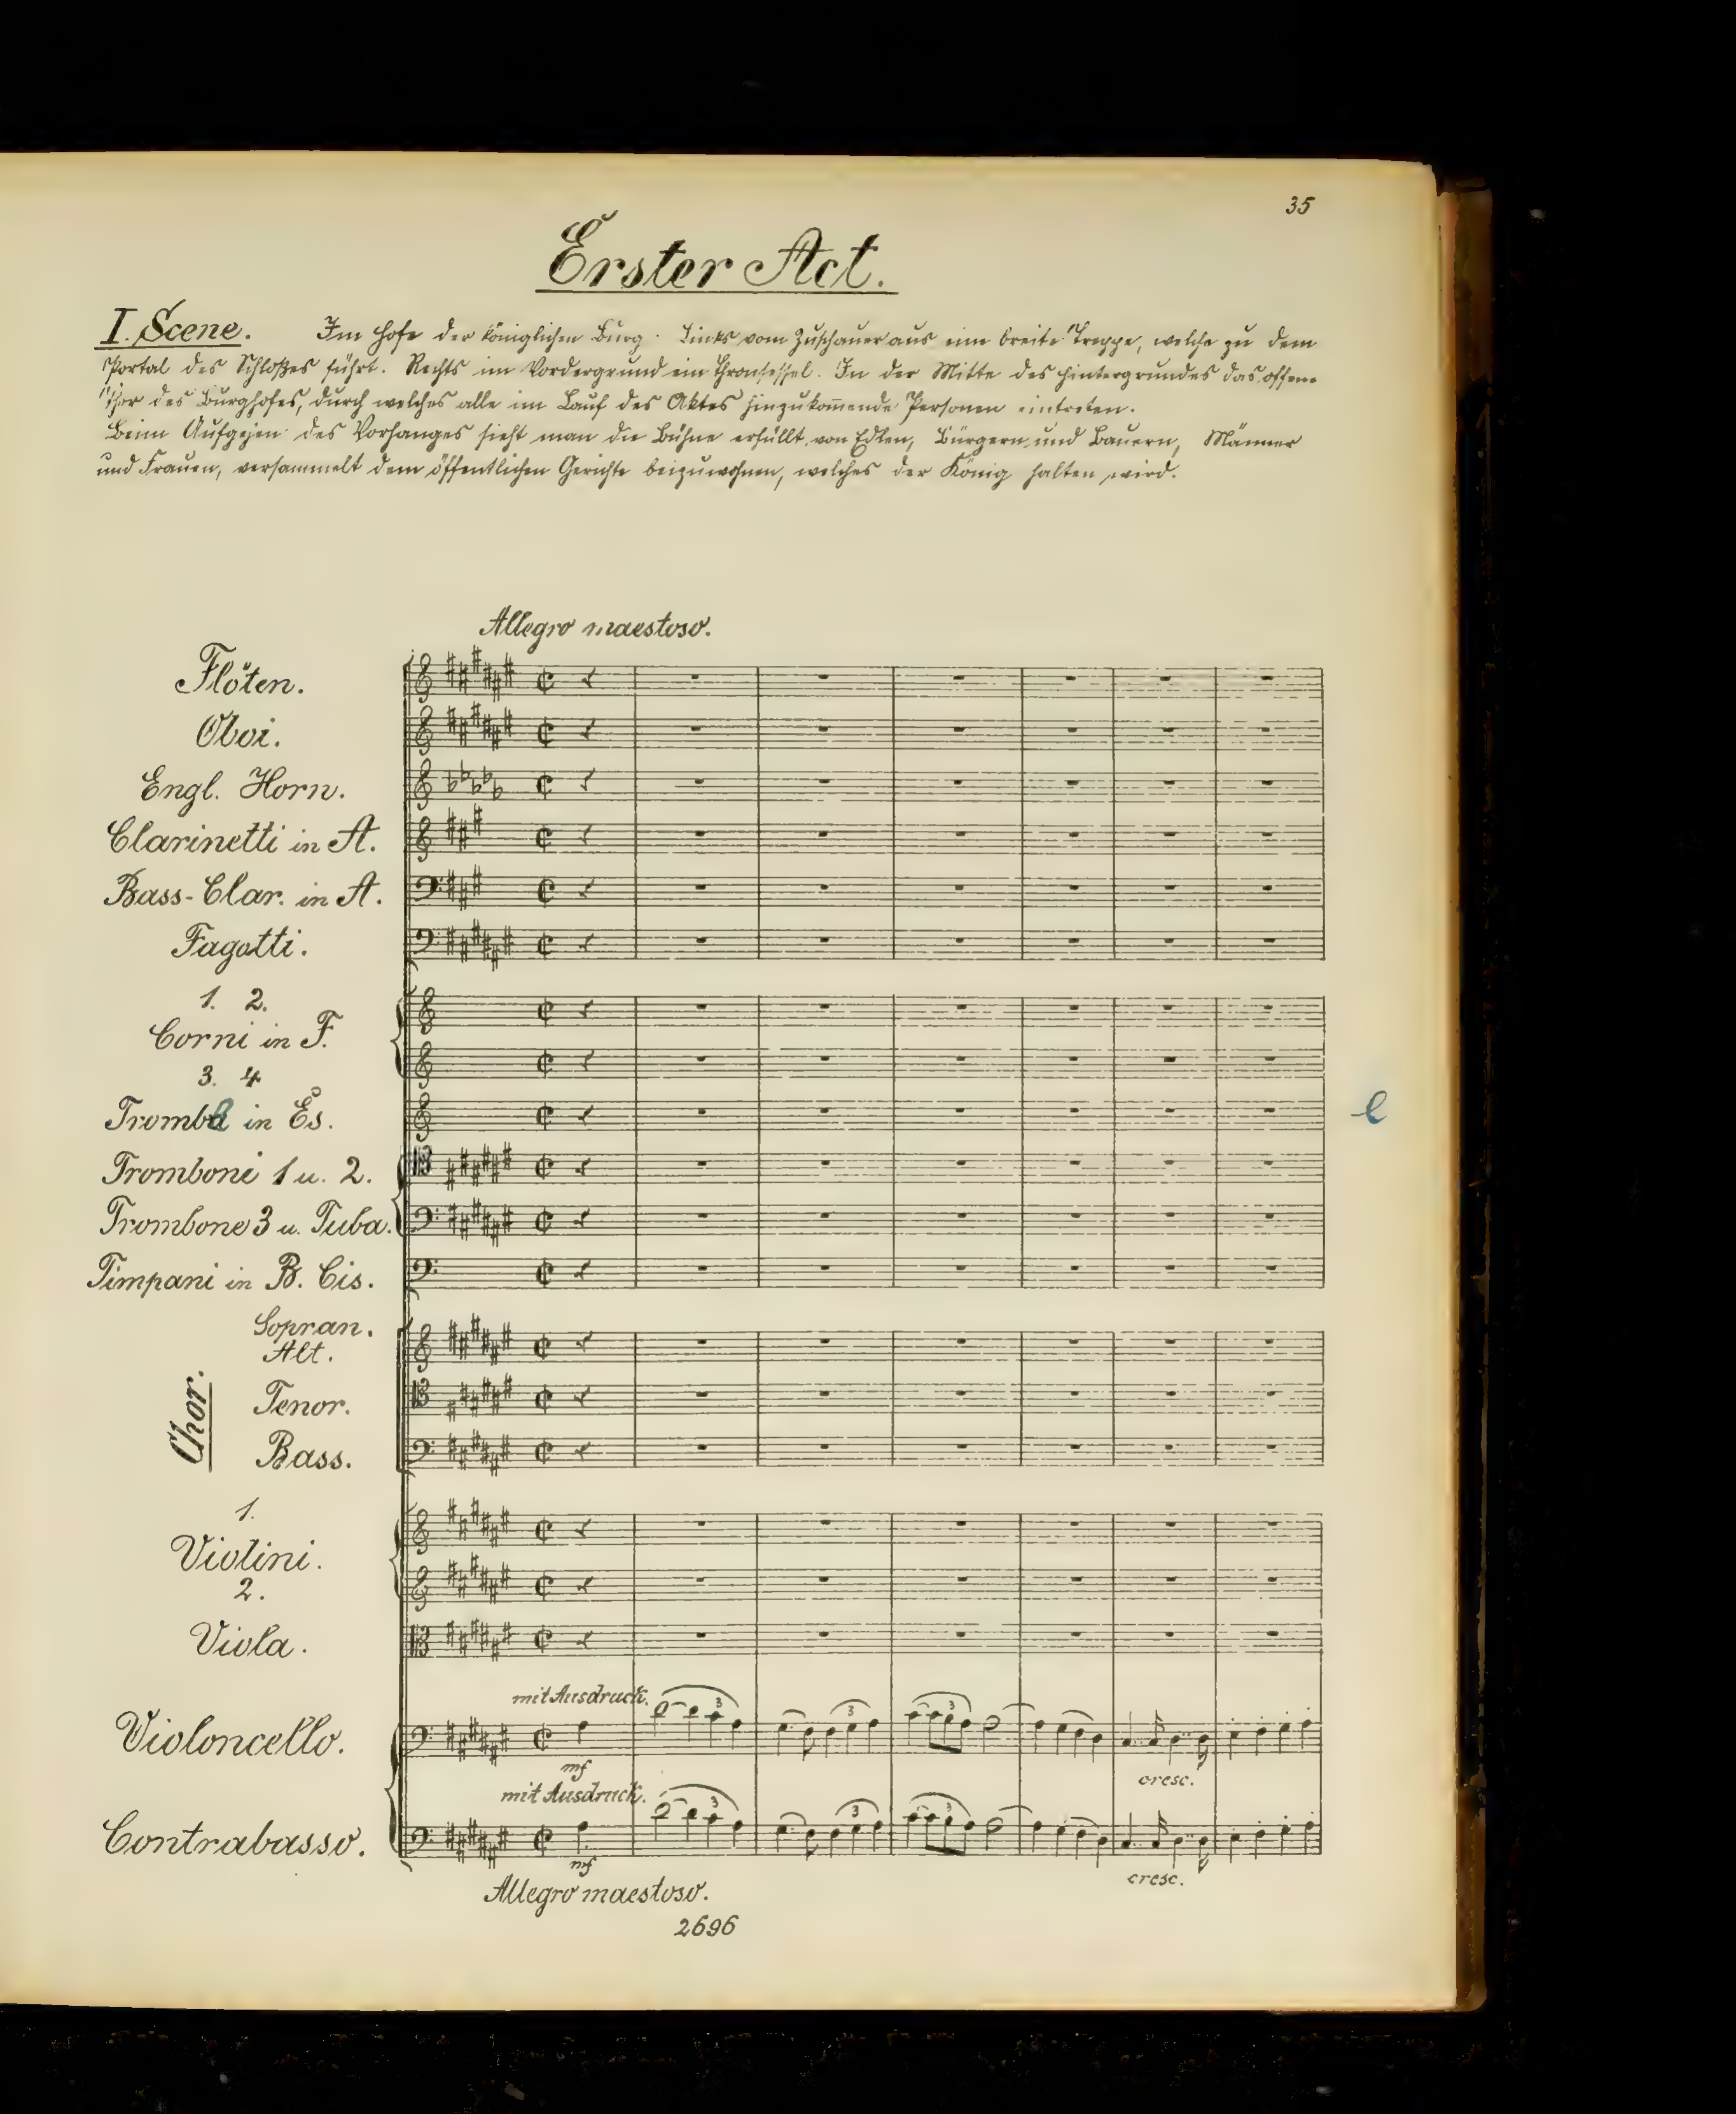 35
Erster Act.
I. Scene. Im Hofe der königlichen Burg. Links vom Zuschauer aus eine breite Treppe, welche zu dem
Portal des Schloßes führt. Rechts im Vordergrund ein Thronsessel. In der Mitte des Hintergrundes das offene
Thor des Burghofes, durch welches alle im Lauf des Aktes hinzukom̄ende Personen eintreten.
Beim Aufgehen des Vorhanges sieht man die Bühne erfüllt von Edlen, Bürgern und Bauern, Männer
und Frauen, versammelt dem öffentlichen Gerichte beizuwohnen, welches der König halten wird.
Allegro maestoso.
Flöten.
Oboi.
Engl. Horn.
Clarinetti in A.
Bass-Clar. in A.
Fagotti.
1. 2.
Corni in F.
3. 4
Trombe in Es.
e
Tromboni 1 u. 2.
Trombone 3 u. Tuba.
Timpani in B. Cis.
Sopran.
Alt.
Chor.
Tenor.
Bass.
1.
Violini.
2.
Viola.
mit Ausdruck.
3 3 3
Violoncello.
mf
cresc.
mit Ausdruck.
3 3 3
Contrabasso.
mf
cresc.
Allegro maestoso.
2696